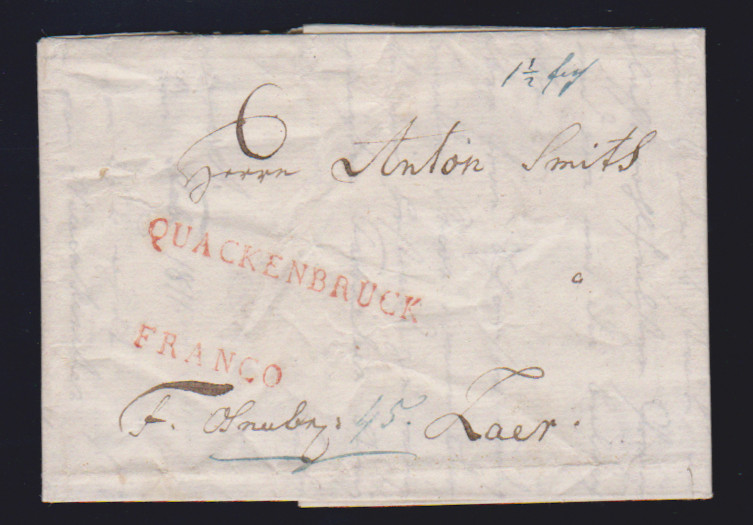 1 1/2
6
Herrn Anton Smits
QUACKENBRUCK
FRANCO
F. Osnabr: 4/5. Laer.